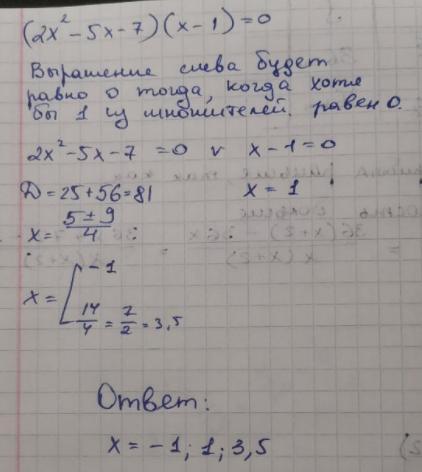 (2x² - 5x - 7)(x - 1) = 0
Выражение слева будет
равно 0 тогда, когда хотя
бы 1 из множителей. равен 0.
2x² - 5x - 7 = 0 v x - 1 = 0
D = 25 + 56 = 81 x = 1
x = (5 ± 9)/4
x = [ -1
14/4 = 7/2 = 3,5
Ответ:
x = -1; 1; 3,5